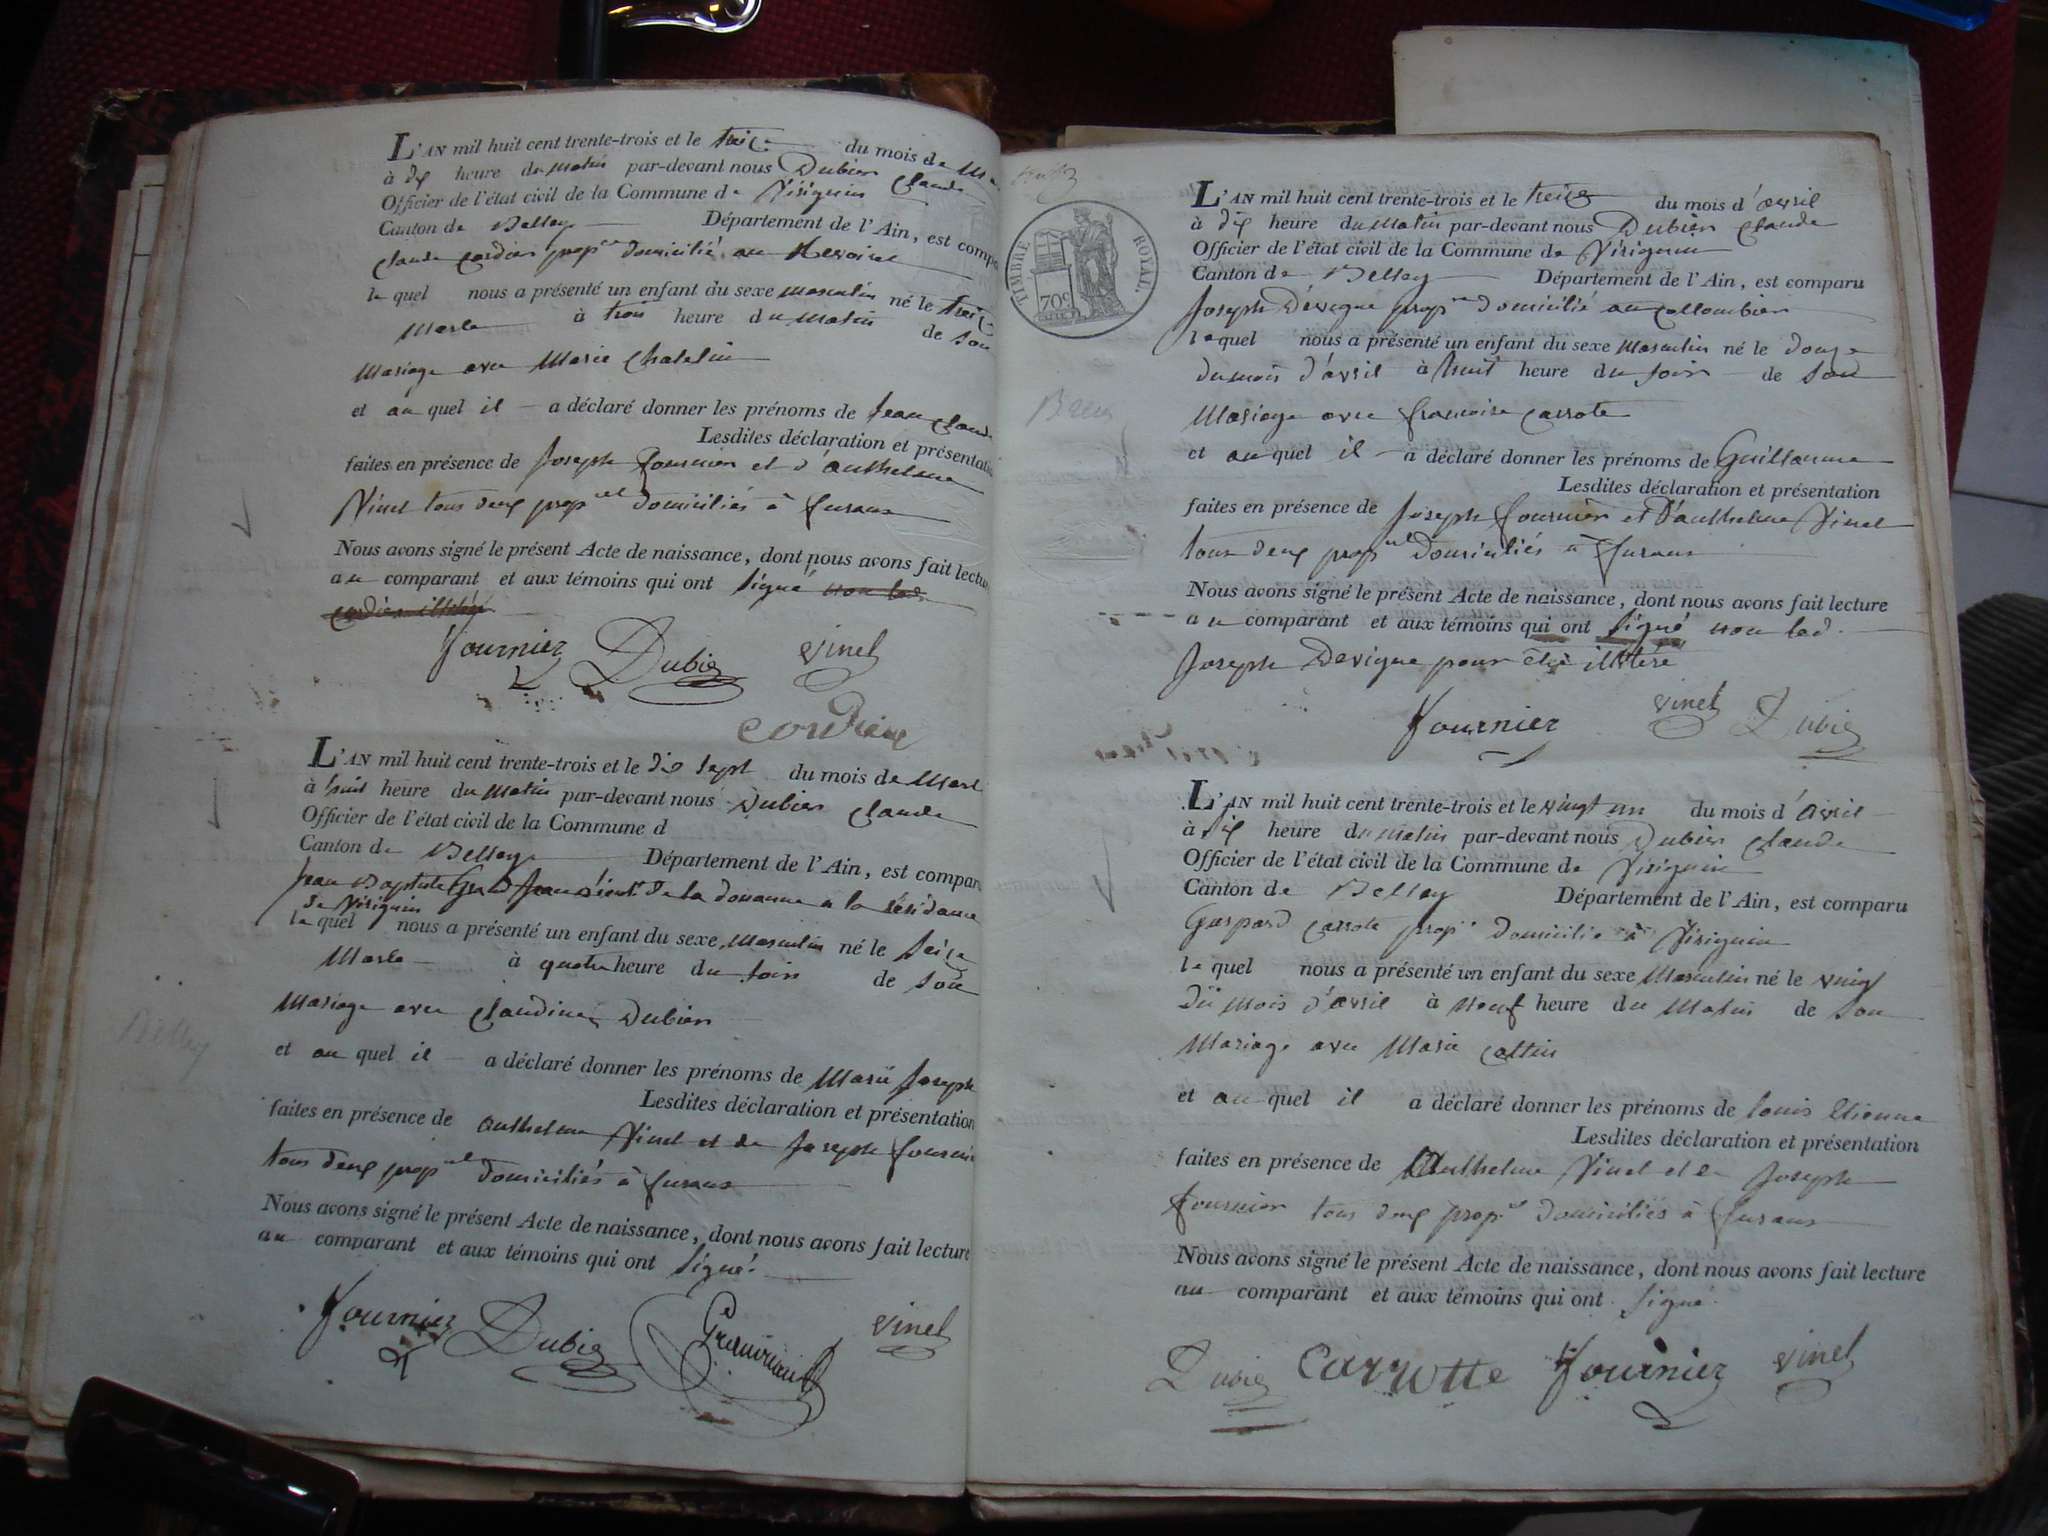 L'AN mil huit cent trente-trois et le treize du mois de
à dix heure du matin par-devant nous Dubier Claude
Officier de l'état civil de la Commune de Virignin
Canton de Belley Département de l'Ain, est compa
Claude Cordier prop.re domicilié au
le quel nous a présenté un enfant du sexe masculin né le treize
Mars à trois heure du matin de son
Mariage avec Marie Chatelin
et au quel il a déclaré donner les prénoms de Jean Claude
Lesdites déclaration et présentati
faites en présence de Joseph Fournier et d'Anthelme
Vinet tous deux prop.res domiciliés à Furans
Nous avons signé le présent Acte de naissance, dont nous avons fait lectu
au comparant et aux témoins qui ont signé non led.
Cordier illitéré
Fournier Dubie vinet
L'AN mil huit cent trente-trois et le dix sept du mois de Mars
à huit heure du Matin par-devant nous Dubier Claude
Officier de l'état civil de la Commune d
Canton de Belley Département de l'Ain, est compar
Jean Baptiste de la douanne a la résidance
de Virignin
le quel nous a présenté un enfant du sexe Masculin né le seize
Mars à quatre heure du soir de son
Mariage avec Claudine Dubier
et au quel il a déclaré donner les prénoms de Marie Joseph
Lesdites déclaration et présentation
faites en présence de Anthelme Vinet et de Joseph Fournier
tous deux prop.res domiciliés à Furans
Nous avons signé le présent Acte de naissance, dont nous avons fait lecture
au comparant et aux témoins qui ont signé.
Fournier Dubie vinet
TIMBRE ROYAL.
70c
L'AN mil huit cent trente-trois et le treize du mois d'avril
à dix heure du Matin par-devant nous Dubier Claude
Officier de l'état civil de la Commune de Virignin
Canton de Belley Département de l'Ain, est comparu
Joseph Dévigne prop.re domicilié au Collombier
le quel nous a présenté un enfant du sexe Masculin né le douze
du mois d'avril à huit heure du soir de son
Mariage avec francoise carrote
et au quel il a déclaré donner les prénoms de Guillaume
Lesdites déclaration et présentation
faites en présence de Joseph fournier et d'anthelme Vinet
tous deux prop.res domiciliés à Furans
Nous avons signé le présent Acte de naissance, dont nous avons fait lecture
au comparant et aux témoins qui ont signé non led.
Joseph Devigne pour être illitéré
Fournier vinet Dubie
L'AN mil huit cent trente-trois et le vingt un du mois d'avril
à dix heure du matin par-devant nous Dubier Claude
Officier de l'état civil de la Commune de Virignin
Canton de Belley Département de l'Ain, est comparu
Gaspard Carrote prop.re domicilié à Virignin
le quel nous a présenté un enfant du sexe Masculin né le vingt
du mois d'avril à neuf heure du Matin de son
Mariage avec Marie Cattin
et au quel il a déclaré donner les prénoms de Louis Etienne
Lesdites déclaration et présentation
faites en présence de Anthelme Vinet et de Joseph
Fournier tous deux prop.res domiciliés à Furans
Nous avons signé le présent Acte de naissance, dont nous avons fait lecture
au comparant et aux témoins qui ont signé.
Dubie carrotte Fournier vinet